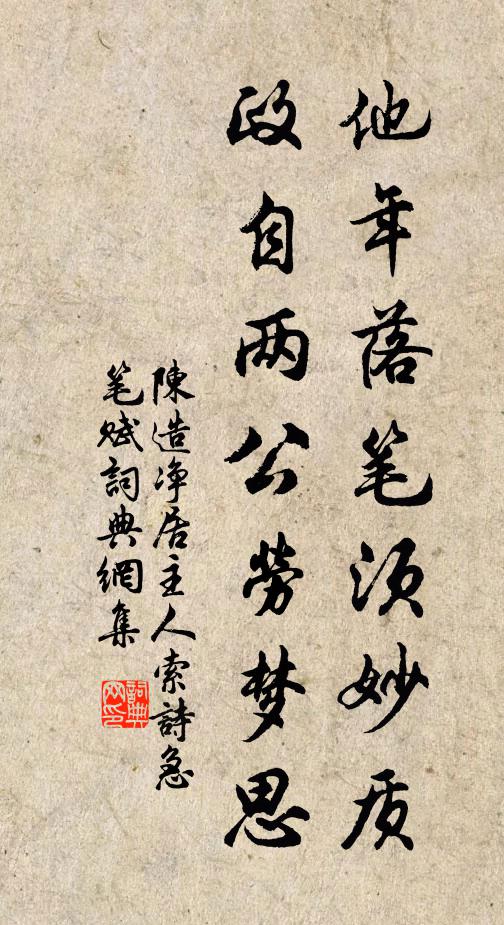 他年落笔须妙质
政自两公劳梦思
陳造净居主人索詩急
笔赋詞典網集
詞典网印